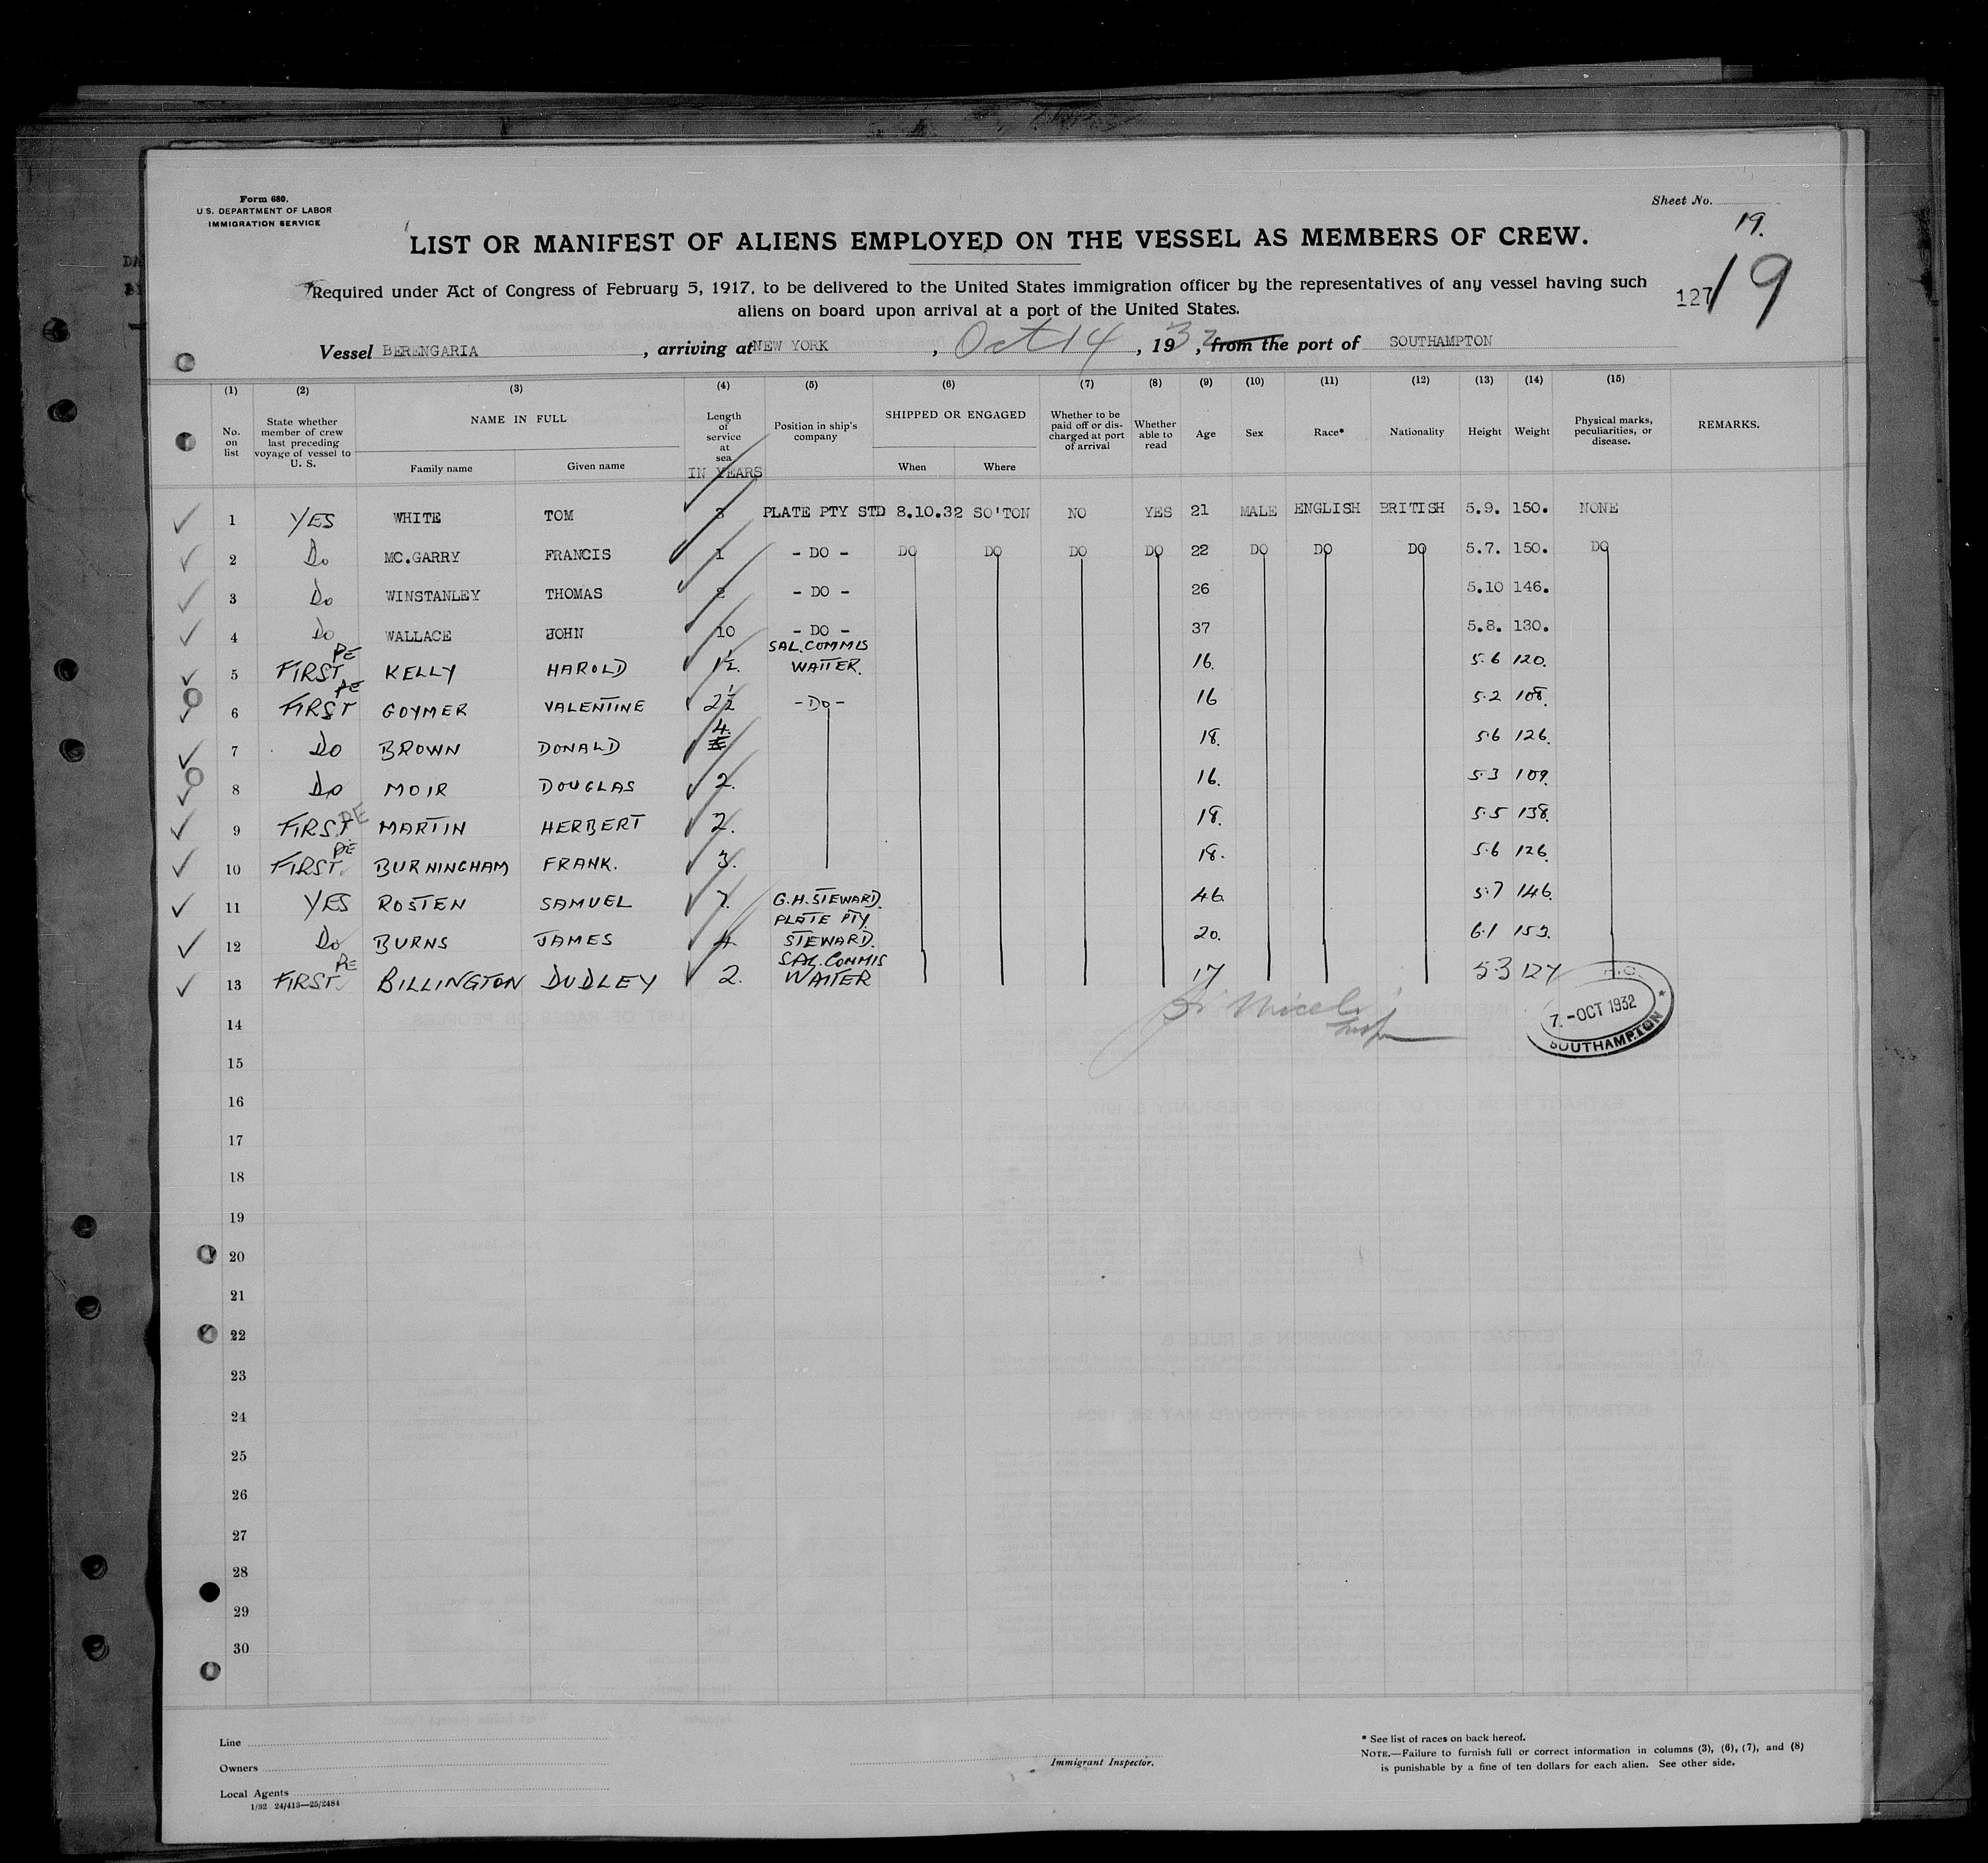 Form 680.
U.S. DEPARTMENT OF LABOR
IMMIGRATION SERVICE
Sheet No.
19.
LIST OR MANIFEST OF ALIENS EMPLOYED ON THE VESSEL AS MEMBERS OF CREW.
127
19
Required under Act of Congress of February 5, 1917, to be delivered to the United States immigration officer by the representatives of any vessel having such
aliens on board upon arrival at a port of the United States.
Vessel BERENGARIA, arriving at NEW YORK, Oct 14, 1932, from the port of SOUTHAMPTON
(1) (2) (3) (4) (5) (6) (7) (8) (9) (10) (11) (12) (13) (14) (15)
No. on list
State whether member of crew last preceding voyage of vessel to U. S.
NAME IN FULL
Family name
Given name
Length of service at sea
IN YEARS
Position in ship's company
SHIPPED OR ENGAGED
When
Where
Whether to be paid off or discharged at port of arrival
Whether able to read
Age
Sex
Race*
Nationality
Height
Weight
Physical marks, peculiarities, or disease.
REMARKS.
1 YES WHITE TOM 3 PLATE PTY STD 8.10.32 SO'TON NO YES 21 MALE ENGLISH BRITISH 5.9. 150. NONE
2 Do MC.GARRY FRANCIS 1 - DO - DO DO DO DO 22 DO DO DO 5.7. 150. DO
3 Do WINSTANLEY THOMAS 2 - DO - 26 5.10 146.
4 Do WALLACE JOHN 10 - DO - 37 5.8. 130.
5 FIRST PE KELLY HAROLD 1½. SAL. COMMIS WAITER. 16. 5.6 120.
6 FIRST PE GOYMER VALENTINE 2½ - Do - 16 5.2 108.
7 Do BROWN DONALD 4. 18. 5.6 126.
8 Do MOIR DOUGLAS 2. 16. 5.3 109.
9 FIRST. PE MARTIN HERBERT 2. 18. 5.5 138.
10 FIRST. PE BURNINGHAM FRANK. 3. 18. 5.6 126.
11 YES ROSTEN SAMUEL 7. G.H. STEWARD. 46. 5.7 146.
12 Do BURNS JAMES 4. PLATE PTY. STEWARD. 20. 6.1 153.
13 FIRST. PE BILLINGTON DUDLEY 2. SAL. COMMIS WAITER 17 5.3 127
7.-OCT 1932
SOUTHAMPTON
14
15
16
17
18
19
20
21
22
23
24
25
26
27
28
29
30
Line
Owners
Local Agents
1/32 24/413—25/2484
Immigrant Inspector.
* See list of races on back hereof.
NOTE.—Failure to furnish full or correct information in columns (3), (6), (7), and (8)
is punishable by a fine of ten dollars for each alien. See other side.